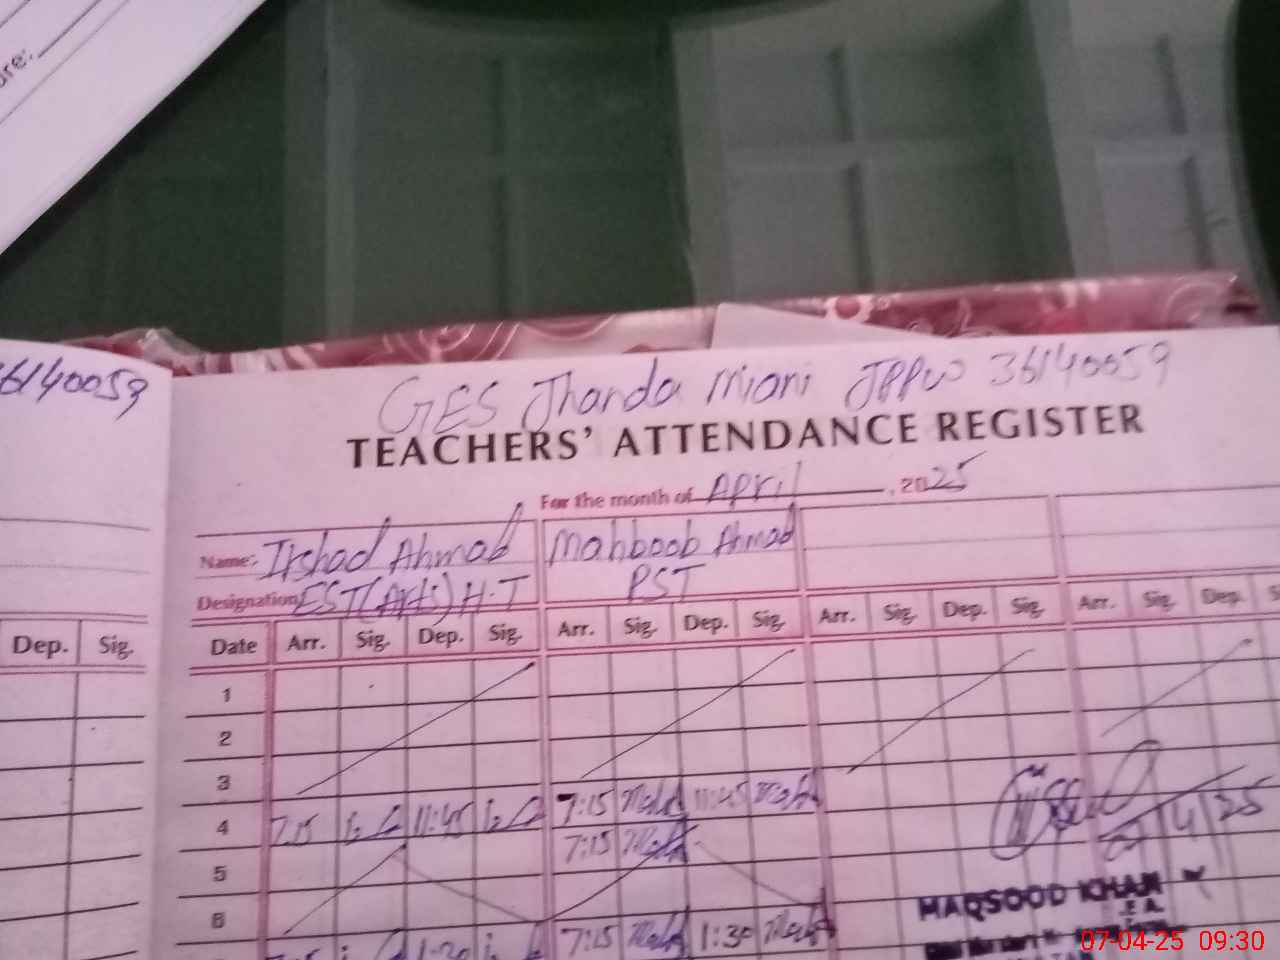 36140059
GES Jhanda Miani JPPW 36140059
TEACHERS' ATTENDANCE REGISTER
For the month of April, 2025
Name:- Irshad Ahmad Mahboob Ahmad
Designation EST(Arts) H.T PST
Dep. Sig. Date Arr. Sig. Dep. Sig. Arr. Sig. Dep. Sig. Arr. Sig. Dep. Sig. Arr. Sig. Dep.
1
2
3
4 7:15 11:45 7:15 11:45
7:15
5
6
7:15 1:30
4 25
MAQSOOD KHAN
07-04-25 09:30